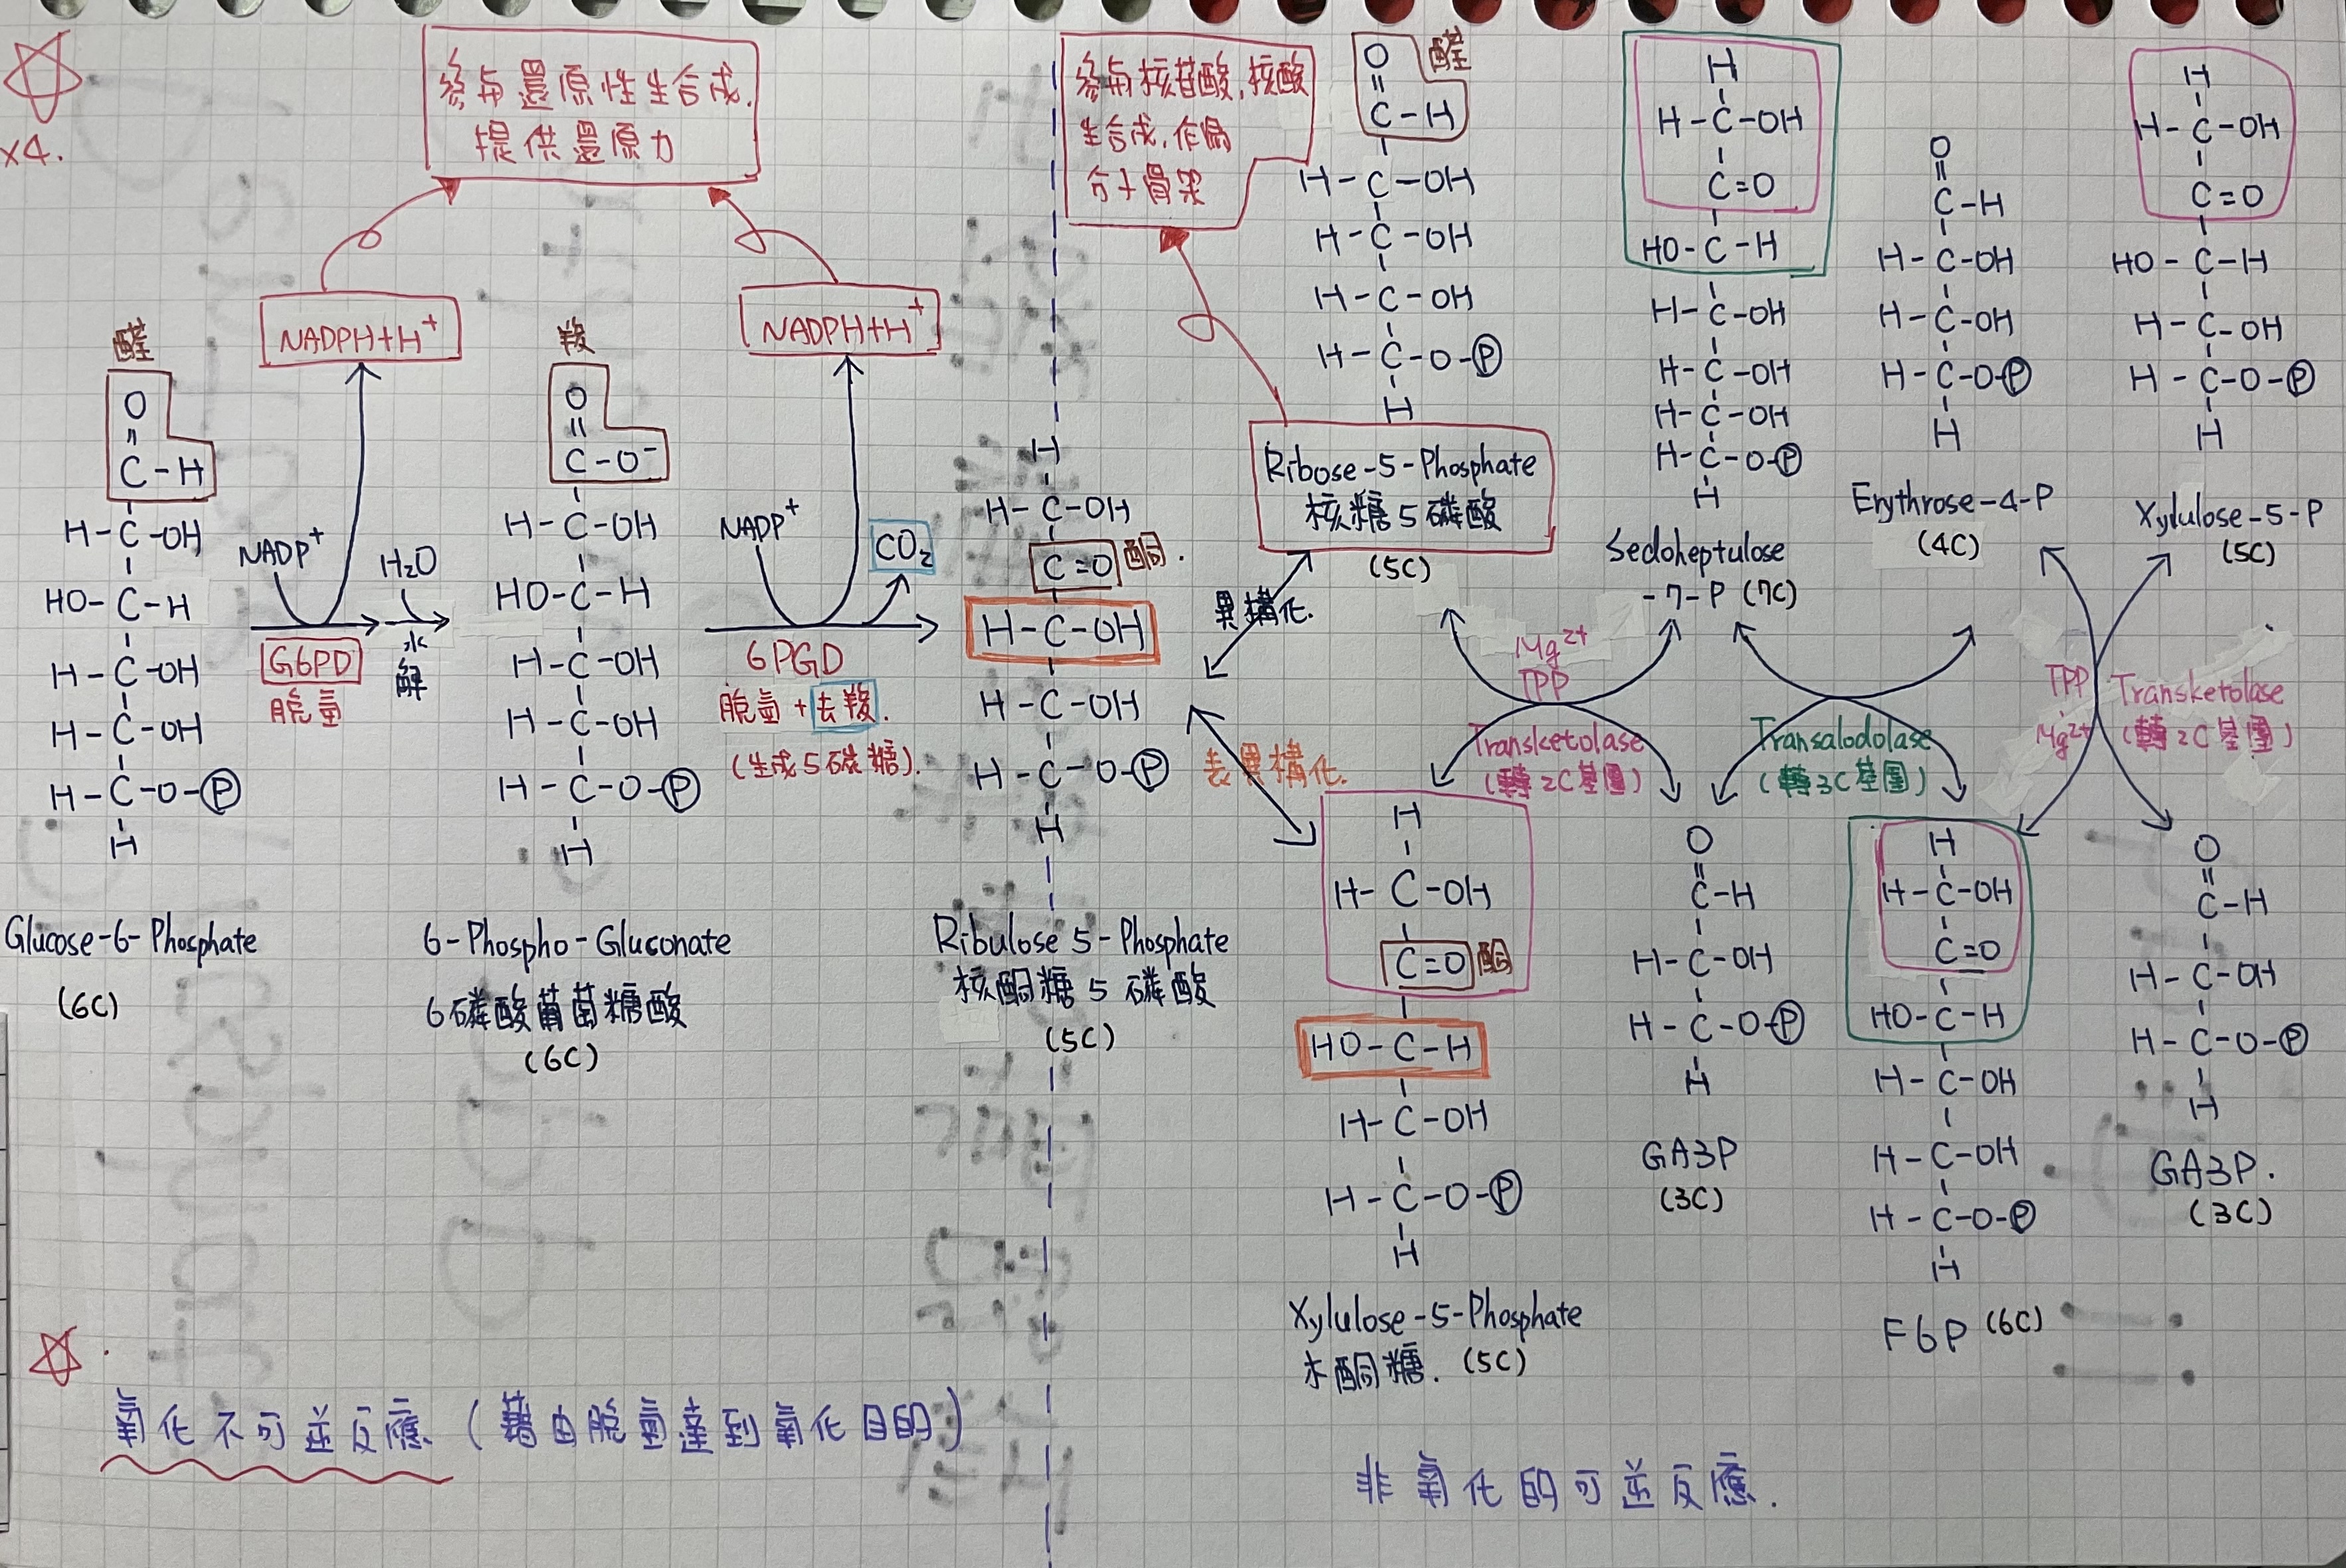 x4.
參與還原性生合成.
提供還原力
NADPH+H⁺
NADPH+H⁺
醛
O
C-H
H-C-OH
HO-C-H
H-C-OH
H-C-OH
H-C-O-Ⓟ
H
Glucose-6-Phosphate
(6C)
NADP⁺
H₂O
G6PD
脫氫
水
解
羧
O
C-O⁻
H-C-OH
HO-C-H
H-C-OH
H-C-OH
H-C-O-Ⓟ
H
6-Phospho-Gluconate
6磷酸葡萄糖酸
(6C)
NADP⁺
CO₂
6PGD
脫氫+去羧.
(生成5碳糖).
H
H-C-OH
C=O 酮.
H-C-OH
H-C-OH
H-C-O-Ⓟ
H
Ribulose 5-Phosphate
核酮糖5磷酸
(5C)
參與核苷酸,核酸
生合成,作為
分子骨架
異構化.
表異構化.
醛
O
C-H
H-C-OH
H-C-OH
H-C-OH
H-C-O-Ⓟ
H
Ribose-5-Phosphate
核糖5磷酸
(5C)
H
H-C-OH
C=O 酮
HO-C-H
H-C-OH
H-C-O-Ⓟ
H
Xylulose-5-Phosphate
木酮糖. (5C)
Mg²⁺
TPP
Transketolase
(轉2C基團)
H
H-C-OH
C=O
HO-C-H
H-C-OH
H-C-OH
H-C-OH
H-C-O-Ⓟ
H
Sedoheptulose
-7-P (7C)
O
C-H
H-C-OH
H-C-O-Ⓟ
H
GA3P
(3C)
Transalodolase
(轉3C基團)
O
C-H
H-C-OH
H-C-OH
H-C-O-Ⓟ
H
Erythrose-4-P
(4C)
H
H-C-OH
C=O
HO-C-H
H-C-OH
H-C-OH
H-C-O-Ⓟ
H
F6P (6C)
TPP
Mg²⁺
Transketolase
(轉2C基團)
H
H-C-OH
C=O
HO-C-H
H-C-OH
H-C-O-Ⓟ
H
Xylulose-5-P
(5C)
O
C-H
H-C-OH
H-C-O-Ⓟ
H
GA3P.
(3C)
氧化不可逆反應(藉由脫氫達到氧化目的)
非氧化的可逆反應.